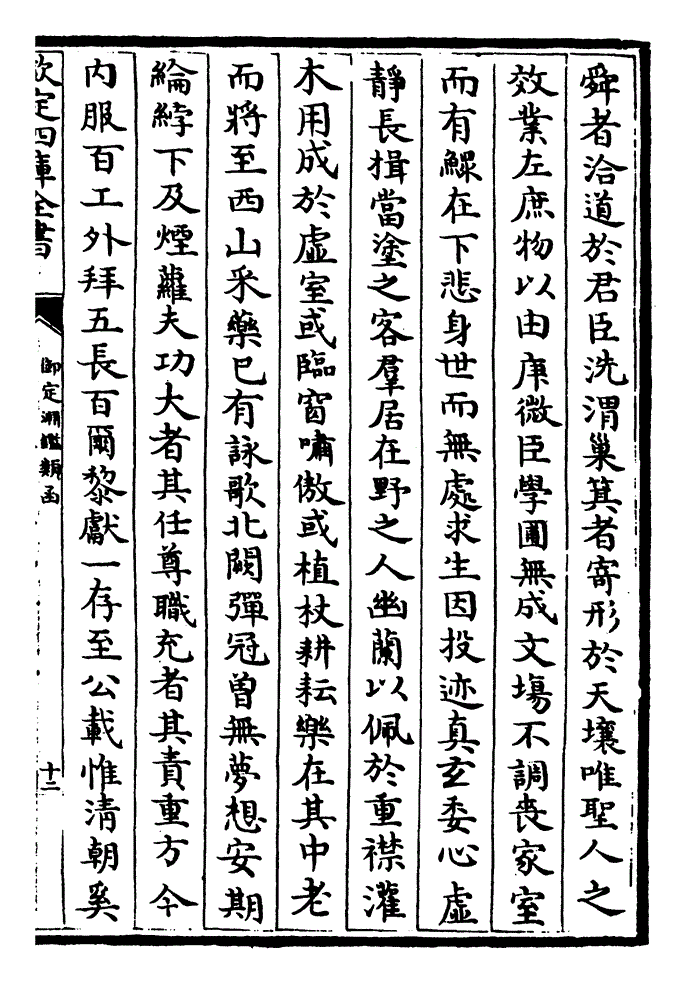 舜者洽道於君臣洗渭巢箕者寄形於天壤唯聖人之
效業左庶物以由庚微臣學圃無成文場不調喪家室
而有鰥在下悲身世而無處求生因投迹真玄委心虛
靜長揖當塗之客羣居在野之人幽蘭以佩於重襟灌
木用成於虛室或臨窗嘯傲或植杖耕耘樂在其中老
而將至西山采藥巳有詠歌北闕彈冠曽無夢想安期
綸綍下及煙蘿夫功大者其任尊職充者其責重方今
内服百工外拜五長百爾黎獻一存至公載惟清朝奚
欽定四庫全書
御定淵鑑類函
十二